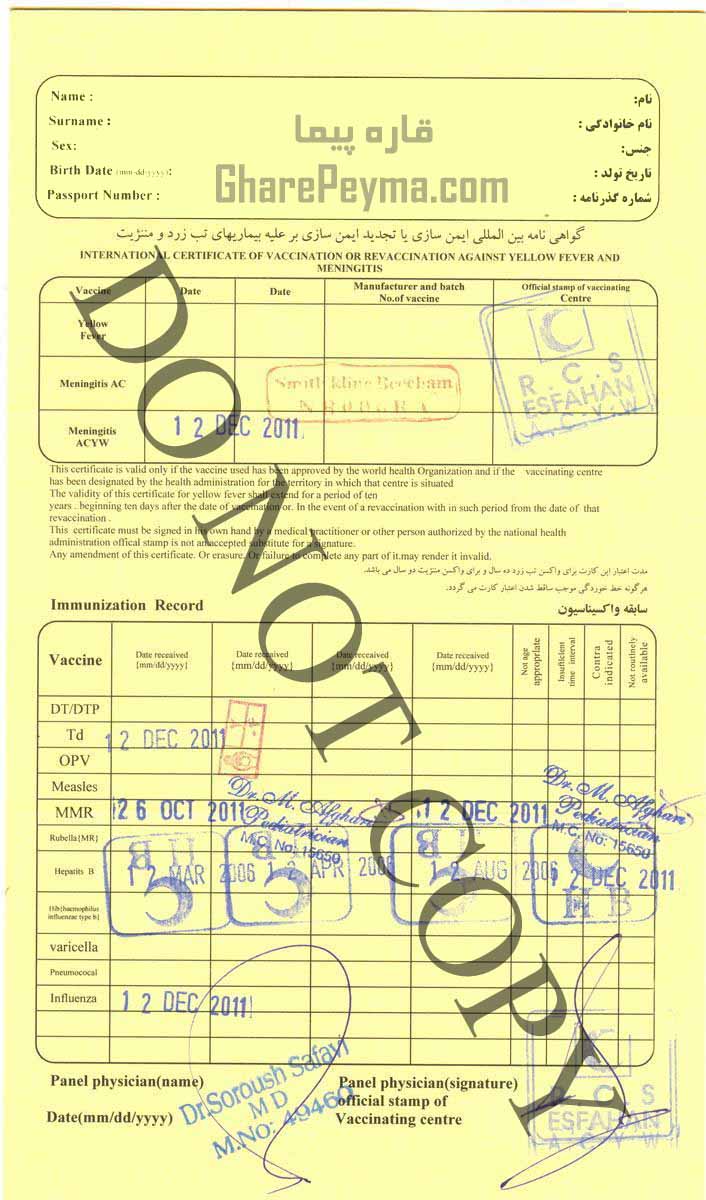 Name :
نام:
Surname :
نام خانوادگی :
Sex:
جنس:
Birth Date (mm-dd-yyyy):
تاریخ تولد :
Passport Number :
شماره گذرنامه :
قاره پیما
GharePeyma.com
گواهی نامه بین المللی ایمن سازی یا تجدید ایمن سازی بر علیه بیماریهای تب زرد و مننژیت
INTERNATIONAL CERTIFICATE OF VACCINATION OR REVACCINATION AGAINST YELLOW FEVER AND
MENINGITIS
Vaccine Date Date Manufacturer and batch No.of vaccine Official stamp of vaccinating Centre
Yellow Fever
Meningitis AC
Smith kline Beecham
R.C.S
ESFAHAN
A C Y W
Meningitis ACYW
12 DEC 2011
This certificate is valid only if the vaccine used has been approved by the world health Organization and if the vaccinating centre
has been designated by the health administration for the territory in which that centre is situated
The validity of this certificate for yellow fever shall extend for a period of ten
years . beginning ten days after the date of vaccination or. In the event of a revaccination with in such period from the date of that
revaccination .
This certificate must be signed in his own hand by a medical practitioner or other person authorized by the national health
administration offical stamp is not an accepted substitute for a signature.
Any amendment of this certificate. Or erasure. Or failure to complete any part of it.may render it invalid.
مدت اعتبار این کارت برای واکسن تب زرد ده سال و برای واکسن مننژیت دو سال می باشد.
هرگونه خط خوردگی موجب ساقط شدن اعتبار کارت می گردد.
Immunization Record
سابقه واکسیناسیون
Vaccine Date receaived {mm/dd/yyyy} Date receaived {mm/dd/yyyy} Date receaived {mm/dd/yyyy} Date receaived {mm/dd/yyyy} Not age approprlate Insufficlent time interval Contra indicated Not routinely available
DT/DTP
Td 12 DEC 2011
OPV
Measles
MMR 26 OCT 2011 12 DEC 2011
Dr. M. Afghari
Pediatrician
M.C. No: 15650
Dr. M. Afghari
Pediatrician
M.C. No: 15650
Rubella{MR}
Hepatits B 12 MAR 2006 12 APR 2006 12 AUG 2006 12 DEC 2011
H B
{Hib}haemophilus influenzae type b}
varicella
Pneumococal
Influenza 12 DEC 2011
Panel physician(name)
Panel physician(signature)
Date(mm/dd/yyyy)
official stamp of
Vaccinating centre
Dr.Soroush Safavi
M D
M.NO: 49460
R C S
ESFAHAN
A C Y W
DO NOT COPY